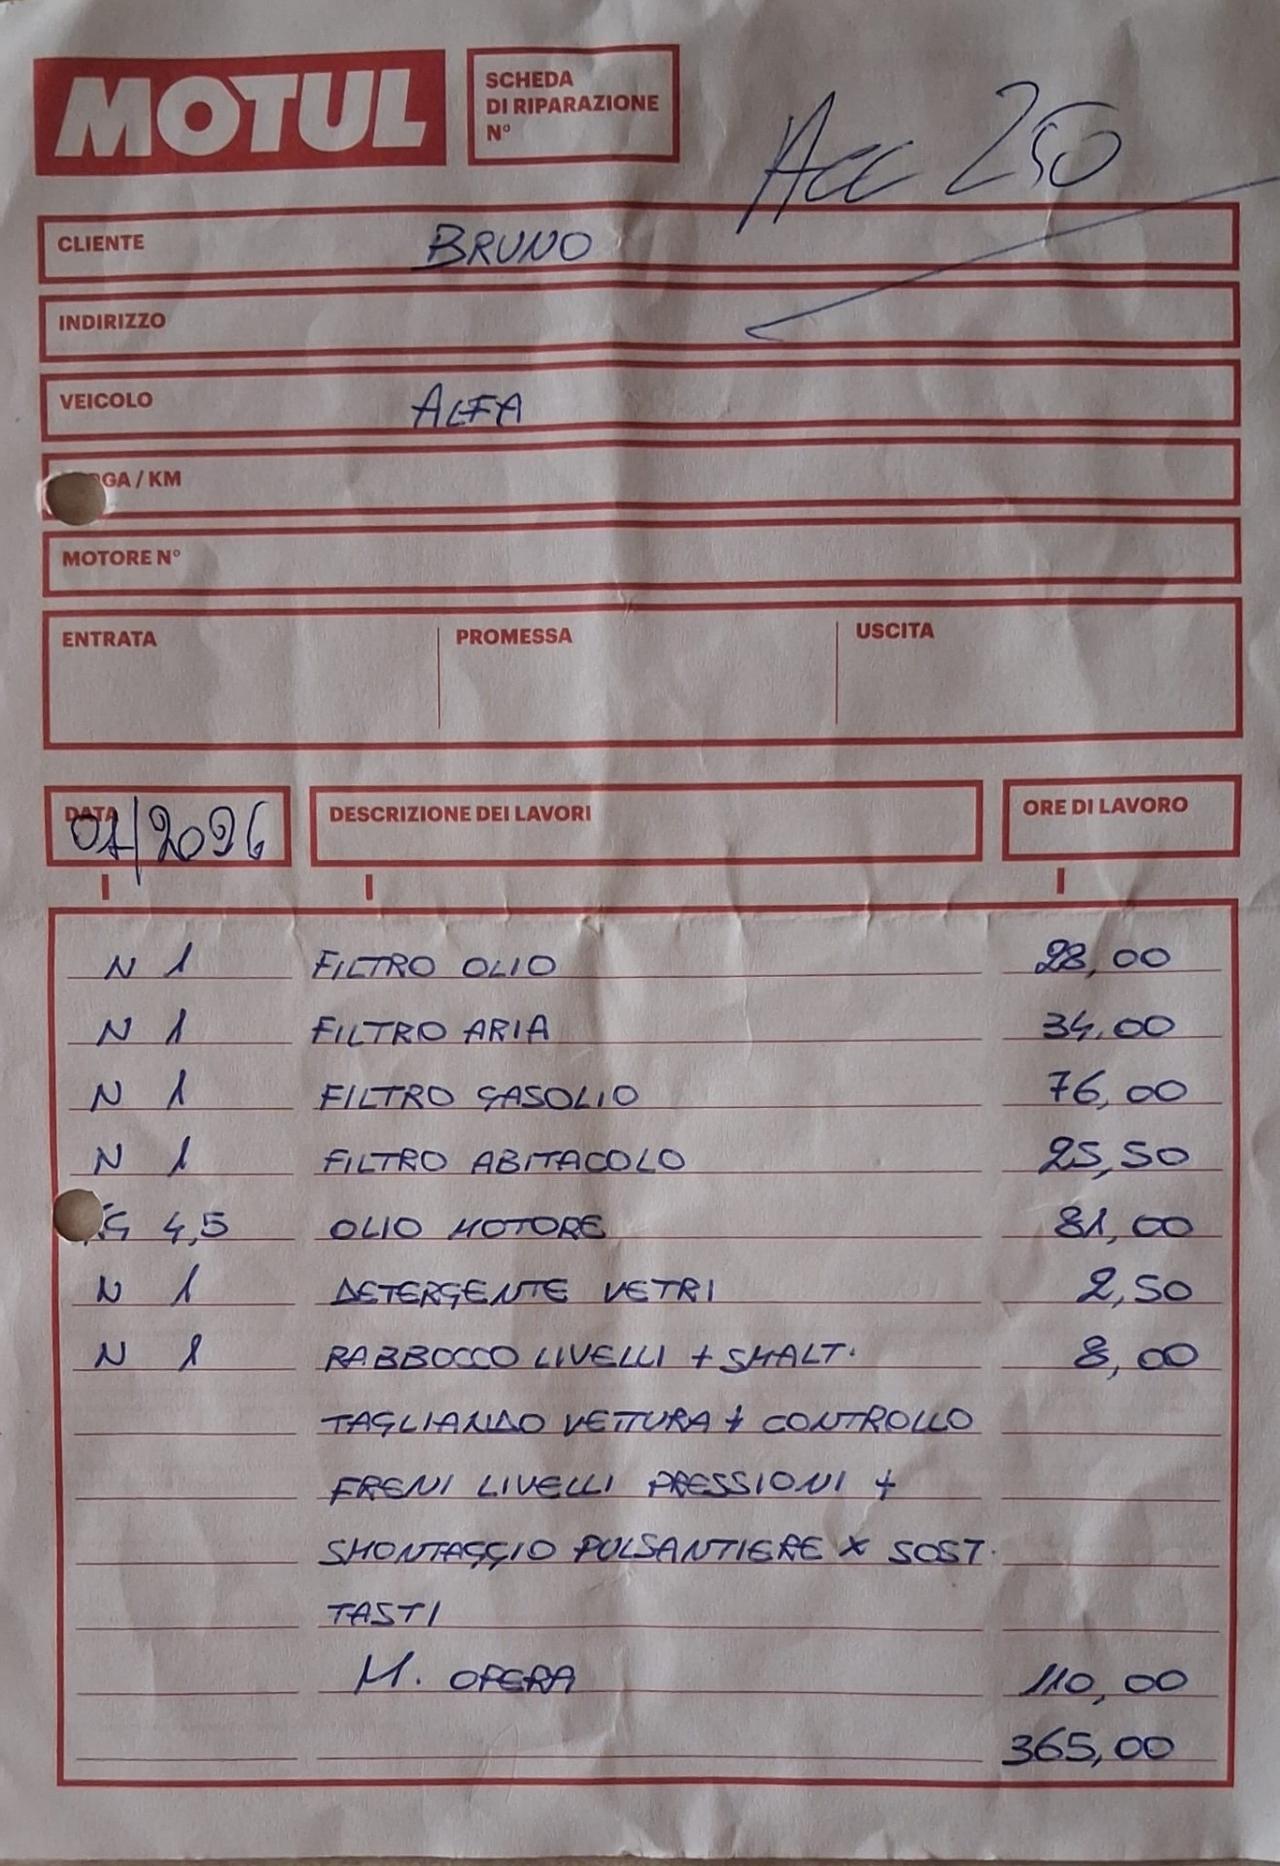 MOTUL
SCHEDA
DI RIPARAZIONE
N°
Acc 250
CLIENTE BRUNO
INDIRIZZO
VEICOLO ALFA
GA / KM
MOTORE N°
ENTRATA PROMESSA USCITA
DATA DESCRIZIONE DEI LAVORI ORE DI LAVORO
01/2026
N 1 FILTRO OLIO 28,00
N 1 FILTRO ARIA 34,00
N 1 FILTRO GASOLIO 76,00
N 1 FILTRO ABITACOLO 25,50
4,5 OLIO MOTORE 81,00
N 1 DETERGENTE VETRI 2,50
N 1 RABBOCCO LIVELLI + SMALT. 8,00
TAGLIANDO VETTURA + CONTROLLO
FRENI LIVELLI PRESSIONI +
SMONTAGGIO PULSANTIERE X SOST.
TASTI
M. OPERA 110,00
365,00